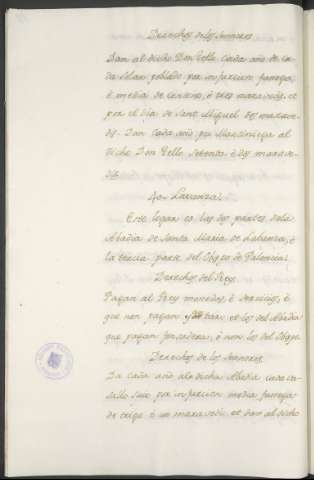 Derechos de los Sennores
Dan al dicho Don Tello cada año de ca-
da solar poblado por infurcion fanega,
é media de cevada, é tres maravedis, et
por el dia de Sant Miguel marave-
dis. Dan cada año por Martiniega al
dicho Don Tello setenta é dos marave-
dis.
Labranza
Este logar es las dos partes de la
Abadia de Santa Maria de Labanza, é
la tercia parte del Obpo de Palencia.
Derechos del Rey
Pagan al Rey monedas, é servicios, é
que non pagan et los del Abadia
que pagan fonsadera, é non los del Obpo
Derechos de los Sennores
Da cada año al dicha Abadia cada va-
sallo suio por infurcion media fanega
de trigo é un maravedi, et dan al dicho